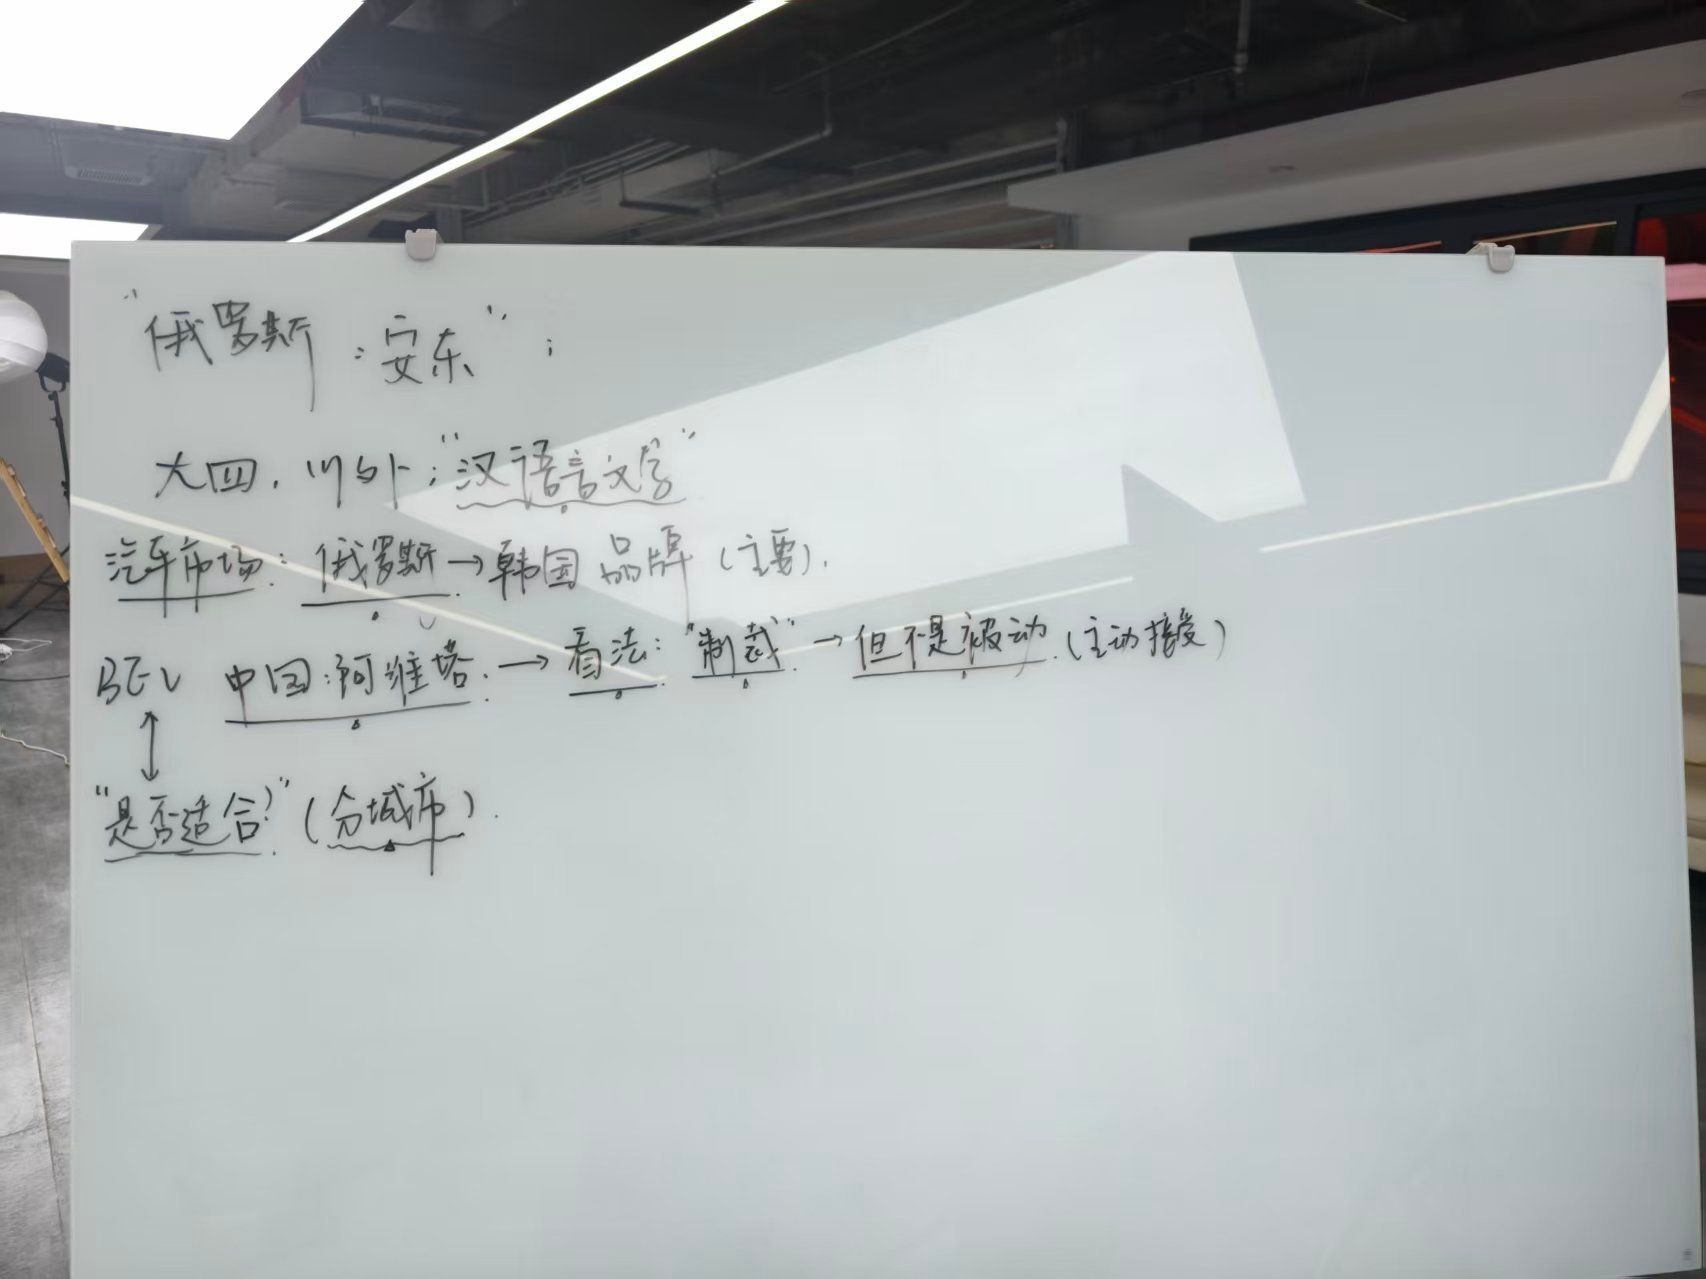 “俄罗斯：安东”；
大四，川外；“汉语言文学”
汽车市场：俄罗斯→韩国品牌（主要）．
BEV 中国：阿维塔．→看法：“制裁”→但不是被动．（主动接受）
↕
“是否适合？”（分城市）．